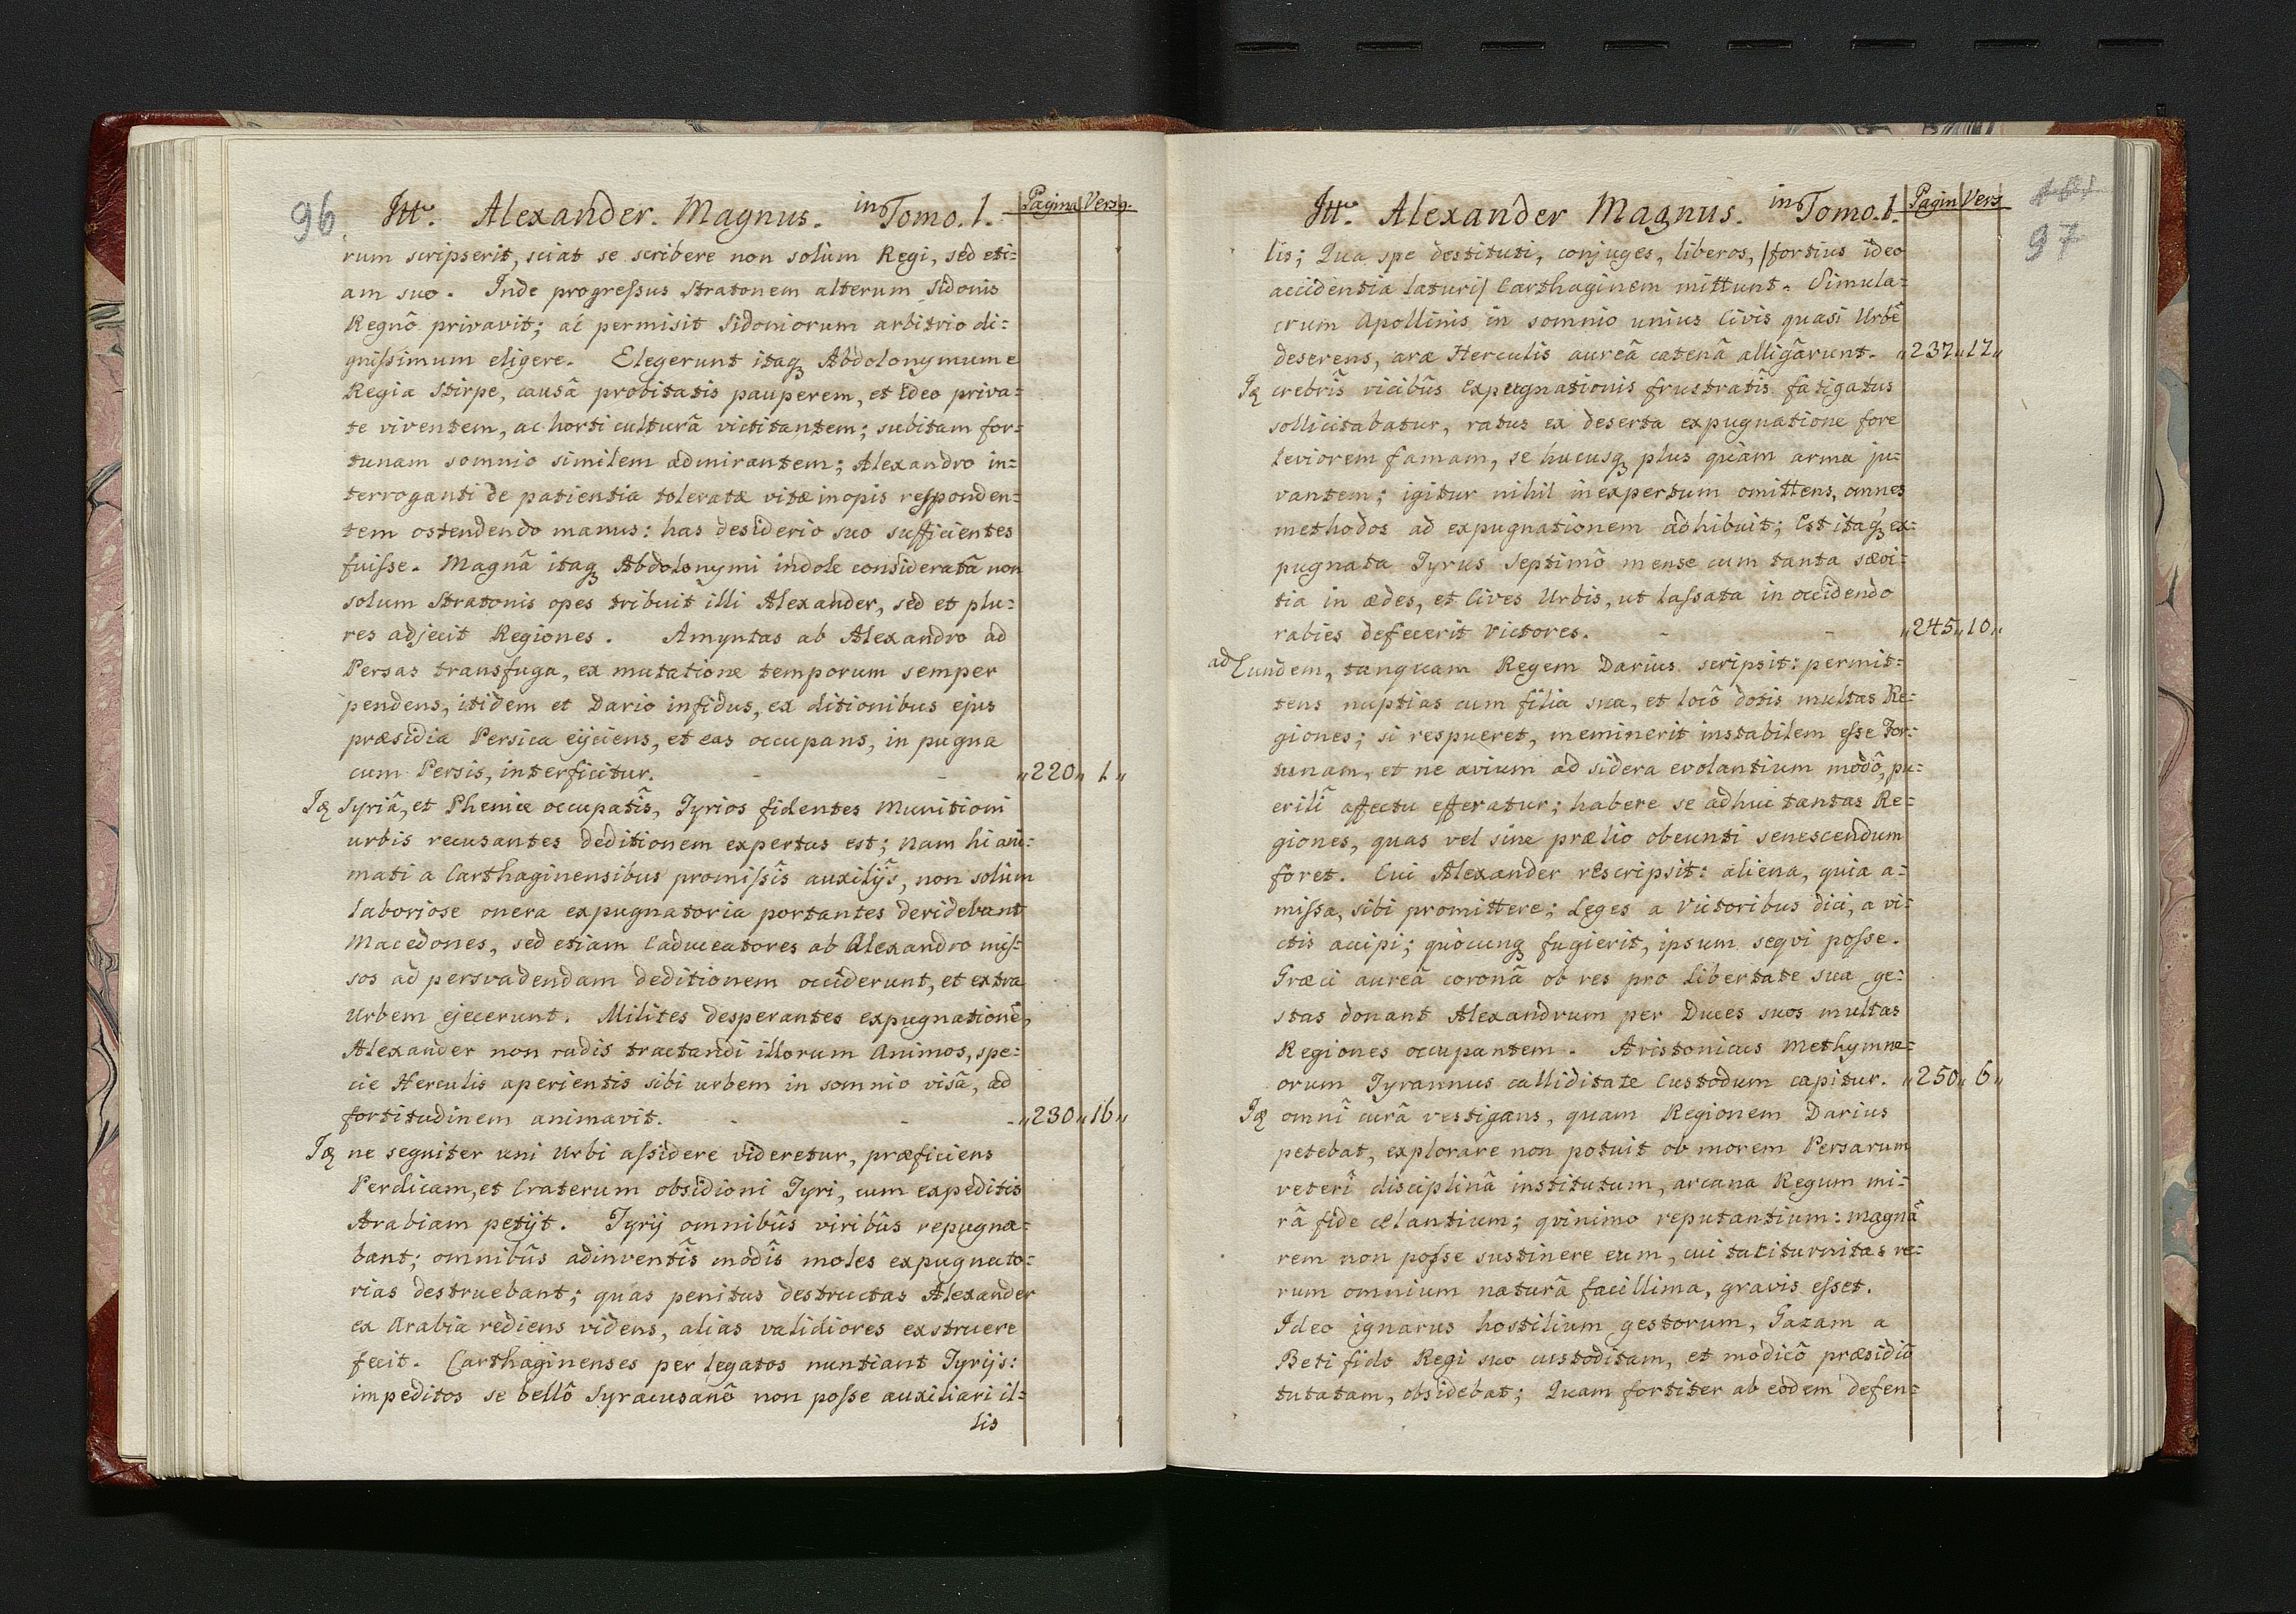 96. Itt. Alexander. Magnus. in Tomo. 1. Pagina Versq.
rum scripserit, sciat se scribere non solùm Regi, sed eti=
am suo. Inde progressus Stratonem alterum Sidonis
Regnô privavit; ac permisit Sidoniorum arbitrio di=
gnissimum eligere. Elegerunt itaq Abdolonymum e
Regia Stirpe, causâ probitatis pauperem, et ideo priva=
te viventem, ac horti culturâ victitantem; subitam for=
tunam somnio similem admirantem; Alexandro in=
terroganti de patientia toleratæ vitæ inopis responden=
tem ostendendo manus: has desiderio suo sufficientes
fuisse. Magnâ itaq Abdolonymi indole consideratâ non
solum Stratonis opes tribuit illi Alexander, sed et plu=
res adjecit Regiones. Amyntas ab Alexandro ad
Persas transfuga, ex mutatione temporum semper
pendens, itidem et Dario infidus, ex ditionibus ejus
præsidia Persica ejiciens, et eas occupans, in pugna
cum Persis, interficitur. - - „220„ 1„
Iq Syriâ, et Phenice occupatîs, Tyrios fidentes Munitioni
urbis recusantes deditionem expertus est; nam hi ani=
mati a Carthaginensibus promissîs auxilijs, non solùm
laboriose onera expugnatoria portantes deridebant
Macedones, sed etiam Caduceatores ab Alexandro mis=
sos ad persvadendam deditionem occiderunt, et extra
Urbem ejecerunt. Milites desperantes expugnationẽ,
Alexander non rudis tractandi illorum Animos, spe=
cie Herculis aperientis sibi urbem in somnio visâ, ad
fortitudinem animavit. - - - „230„16„
Iq ne segniter uni Urbi assidere videretur, præficiens
Perdicam, et Craterum obsidioni Tyri, cum expeditis
Arabiam petijt. Tyrij omnibûs viribûs repugna=
bant; omnibûs adinventîs modîs moles expugnato=
rias destruebant; quas penitus destructas Alexander
ex Arabia rediens videns, alias validiores exstruere
fecit. Carthaginenses per legatos nuntiant Tyrijs:
impeditos se bellô Syracusanô non posse auxiliari il=
lis
Itt. Alexander Magnus. in Tomo. 1. Pagin Vers
97
lis; Qua spe destituti, conjuges, liberos, /fortius ideo
accidentia laturi/ Carthaginem mittunt. Simula=
crum Apollinis in somnio unius Civis quasi Urbẽ
deserens, aræ Herculis aureâ catenâ alligârunt. „237„17„
Iq crebrîs vicibûs Expugnationis frustratîs fatigatus
sollicitabatur, ratus ex deserta expugnatione fore
leviorem famam, se hucusq plus quàm arma ju=
vantem; igitur nihil inexpertum omittens, omnes
methodos ad expugnationem adhibuit; Est itaq ex=
pugnata Tyrus Septimô mense cum tanta sævi=
tia in ædes, et Cives Urbis, ut lassata in occidendo
rabies defecerit Victores. - - „245„10„
ad Eundem, tanquam Regem Darius scripsit: permit=
tens nuptias cum filia sua, et locô dotis multas Re=
giones; si respueret, meminerit instabilem esse For=
tunam, et ne avium ad sidera evolantium modô, pu=
erili affectu efferatur; habere se adhuc tantas Re=
giones, quas vel sine prælio obeunti senescendum
foret. Cui Alexander rescripsit: aliena, quia a=
missa, sibi promittere; Leges a Victoribus dici, a vi=
ctis accipi; quòcunq fugierit, ipsum seqvi posse.
Græci aureâ coronâ ob res pro Libertate sua ge=
stas donant Alexandrum per Duces suos multas
Regiones occupantem. Aristonicus Methymne=
orum Tyrannus calliditate Custodum capitur. „250„ 6„
Iq omnî curâ vestigans, quam Regionem Darius
petebat, explorare non potuit ob morem Persarum
veterî disciplinâ institutum, arcana Regum mi=
râ fide celantium; qvinimo reputantium: magnã
rem non posse sustinere eum, cui taciturnitas re=
rum omnium naturâ facillima, gravis esset.
Ideo ignarus hostilium gestorum, Gazam a
Beti fido Regi suo custoditam, et modicô præsidiô
tutatam, obsidebat; Quam fortiter ab eodem defen=